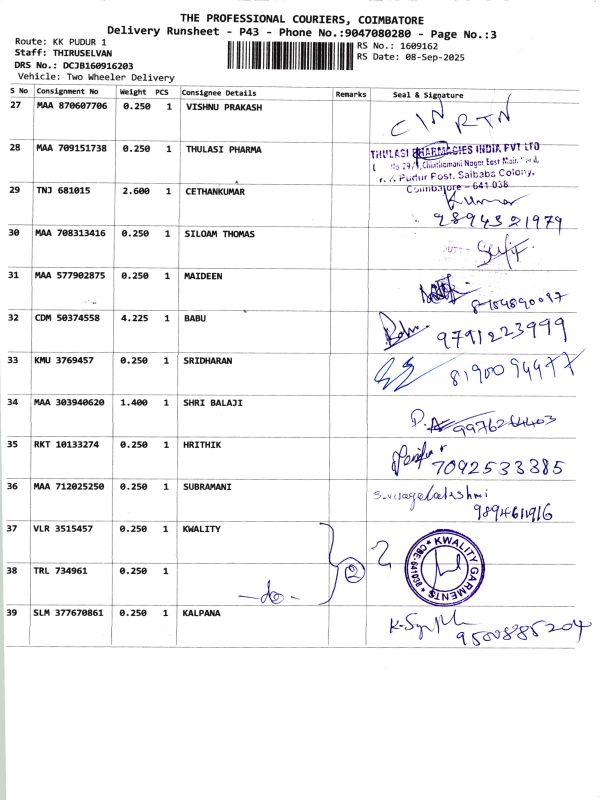 THE PROFESSIONAL COURIERS, COIMBATORE
Delivery Runsheet - P43 - Phone No.:9047080280 - Page No.:3
Route: KK PUDUR 1
Staff: THIRUSELVAN
DRS No.: DCJB160916203
Vehicle: Two Wheeler Delivery
RS No.: 1609162
RS Date: 08-Sep-2025
S No Consignment No Weight PCS Consignee Details Remarks Seal & Signature
27 MAA 870607706 0.250 1 VISHNU PRAKASH CIN RTN
28 MAA 709151738 0.250 1 THULASI PHARMA
THULASI PHARMACIES INDIA PVT LTD
Chinthamani Nagar East Main
Pudur Post, Saibaba Colony,
Coimbatore - 641 038
29 TNJ 681015 2.600 1 CETHANKUMAR Kumar
9894321979
30 MAA 708313416 0.250 1 SILOAM THOMAS
31 MAA 577902875 0.250 1 MAIDEEN
32 CDM 50374558 4.225 1 BABU Babu 9791223999
33 KMU 3769457 0.250 1 SRIDHARAN 8190094977
34 MAA 303940620 1.400 1 SHRI BALAJI
35 RKT 10133274 0.250 1 HRITHIK 7092533385
36 MAA 712025250 0.250 1 SUBRAMANI S. vijayalakshmi
9894611916
37 VLR 3515457 0.250 1 KWALITY 2
KWALITY GARMENTS CBE-641038
38 TRL 734961 0.250 1 -do-
39 SLM 377670861 0.250 1 KALPANA 9500885204